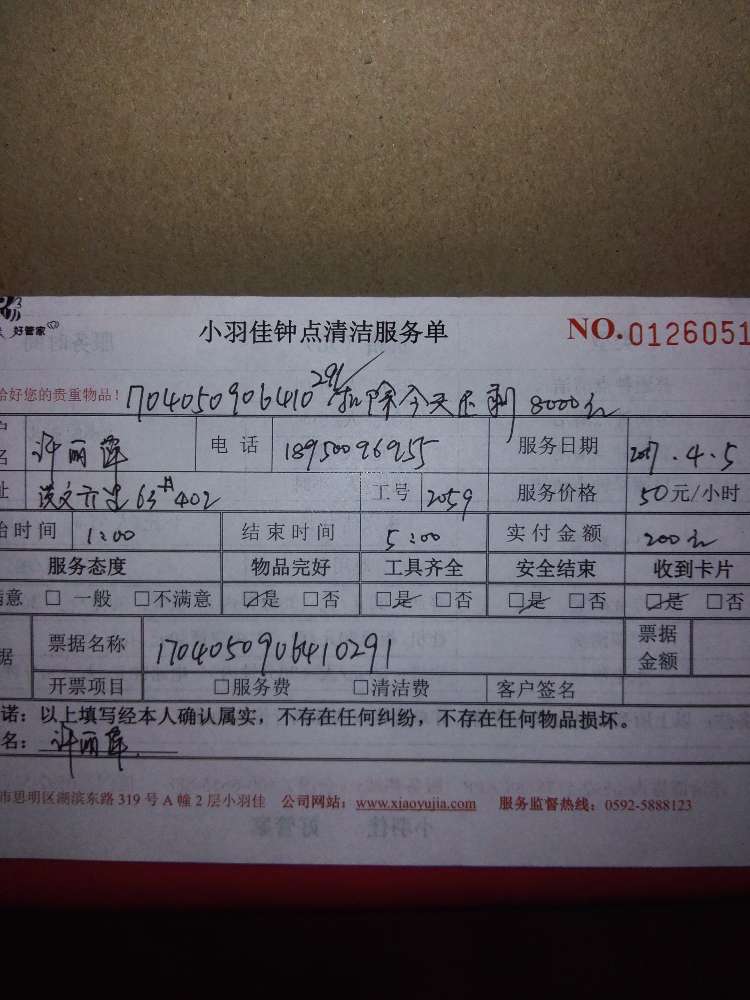 好管家
小羽佳钟点清洁服务单 NO.0126051
好您的贵重物品! 1704050906410291 扣除今天还剩8000元
名 许丽萍 电话 18950096955 服务日期 2017.4.5
址 63# 402 工号 2059 服务价格 50元/小时
时间 1:00 结束时间 5:00 实付金额 200元
服务态度 物品完好 工具齐全 安全结束 收到卡片
满意 □ 一般 □不满意 ☑是 □否 ☑是 □否 ☑是 □否 ☑是 □否
据 票据名称 1704050906410291 票据金额
开票项目 □服务费 □清洁费 客户签名
诺:以上填写经本人确认属实,不存在任何纠纷,不存在任何物品损坏。
名: 许丽萍
市思明区湖滨东路319号A幢2层小羽佳 公司网站:www.xiaoyujia.com 服务监督热线:0592-5888123